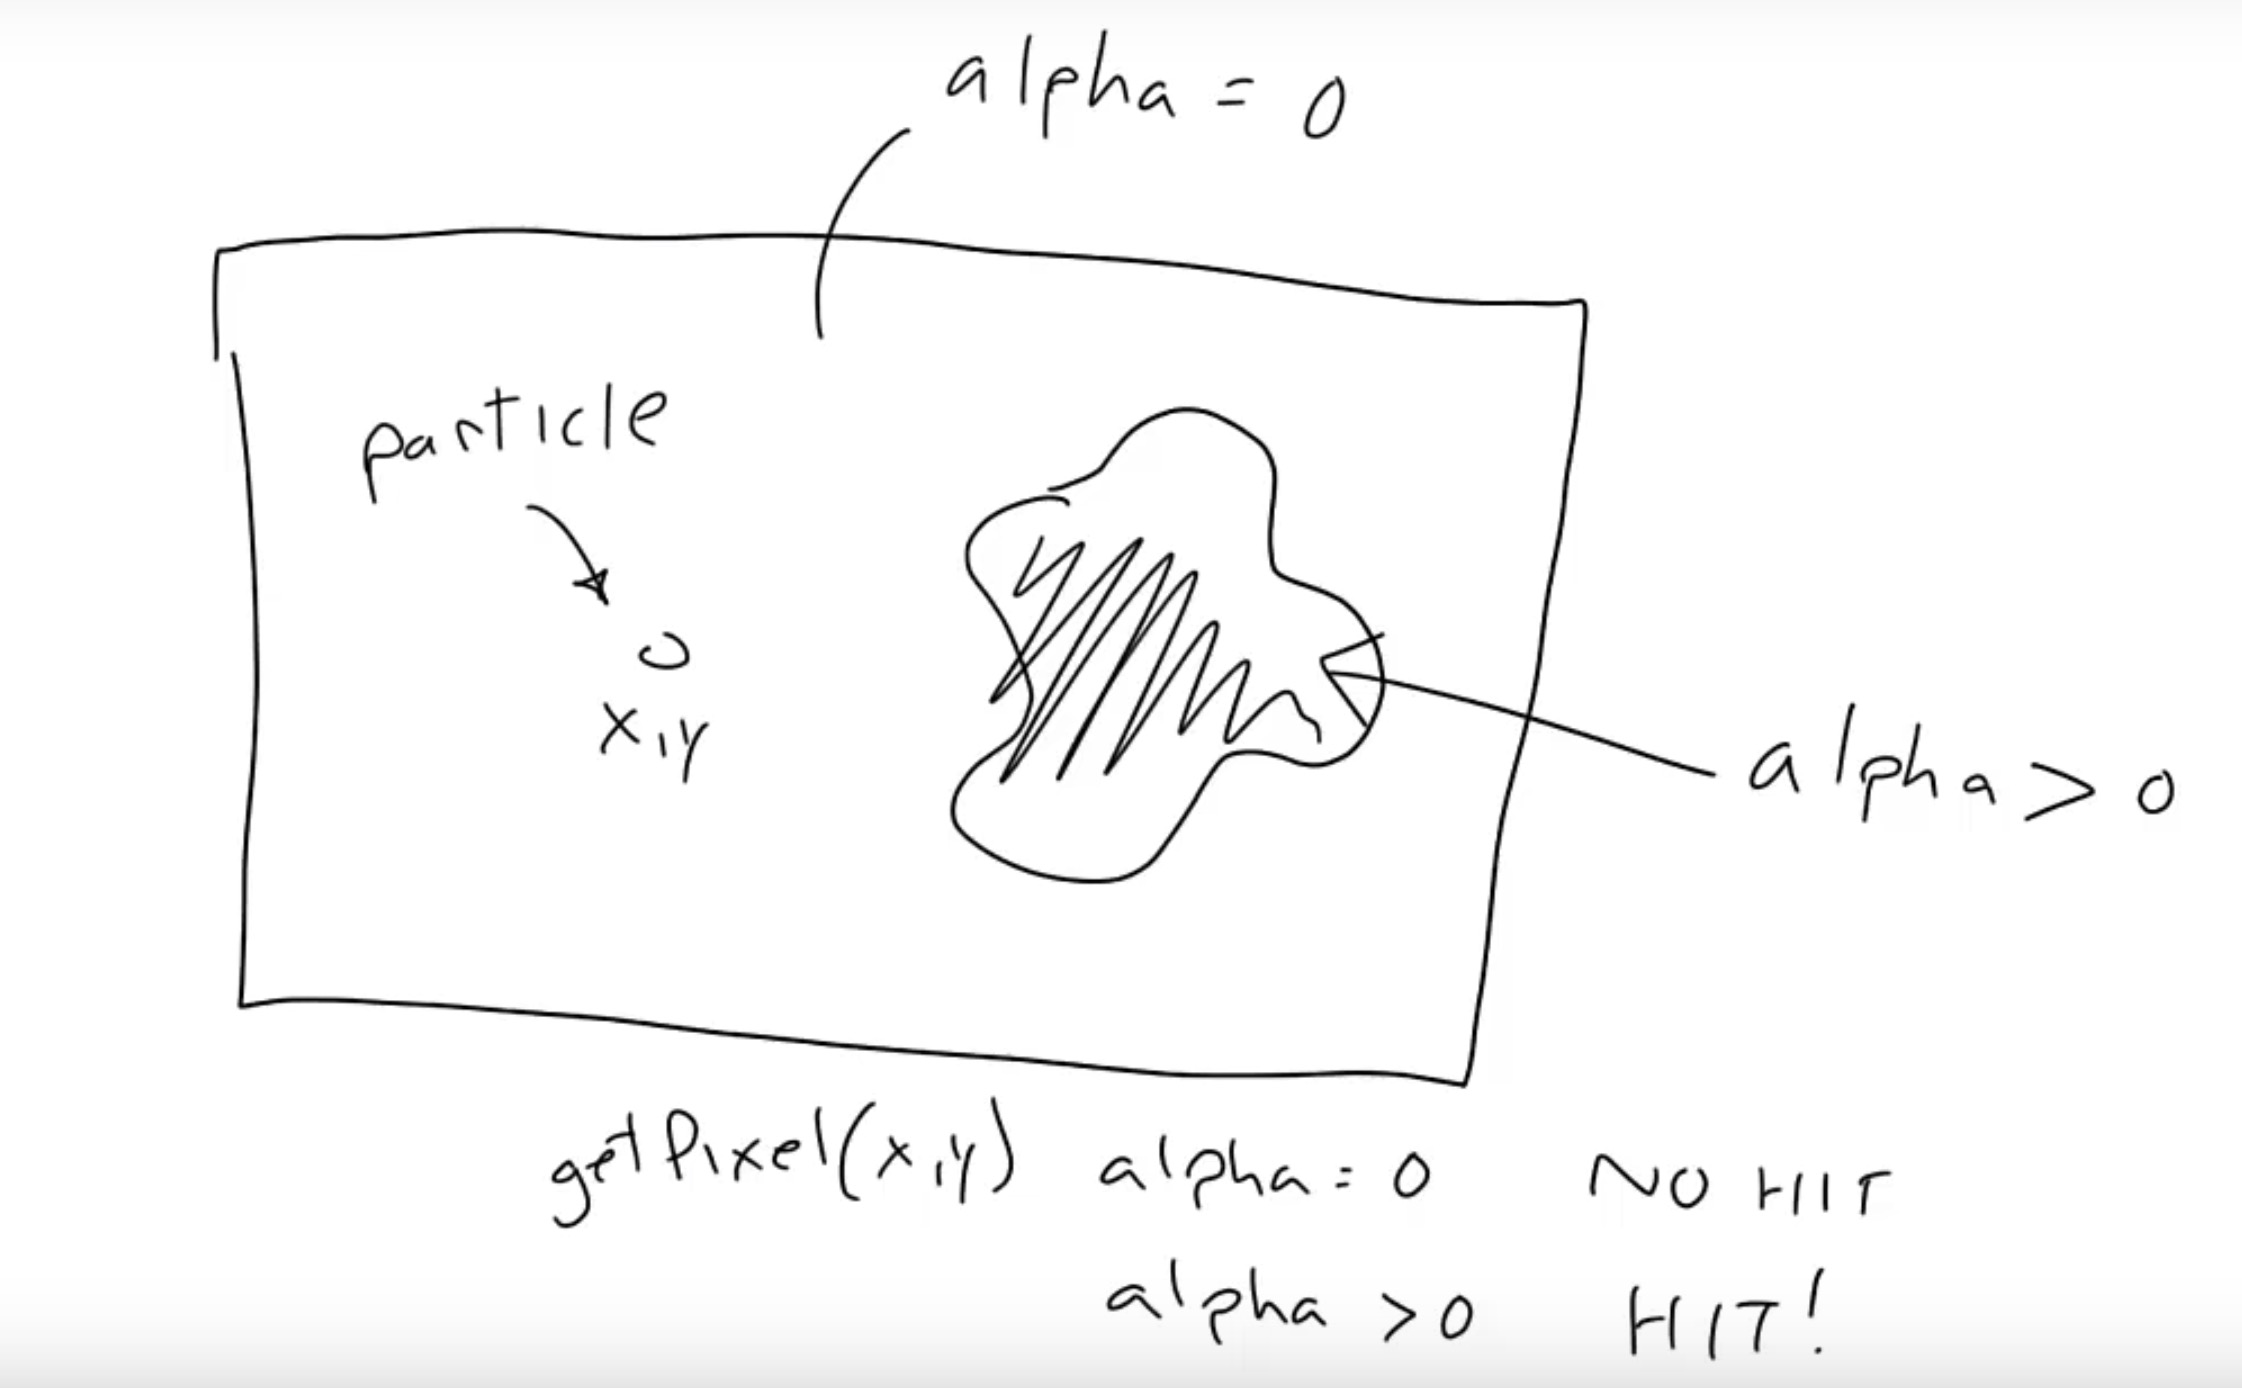 alpha = 0
particle
x,y
alpha > 0
getPixel(x,y) alpha = 0 NO HIT
alpha > 0 HIT!